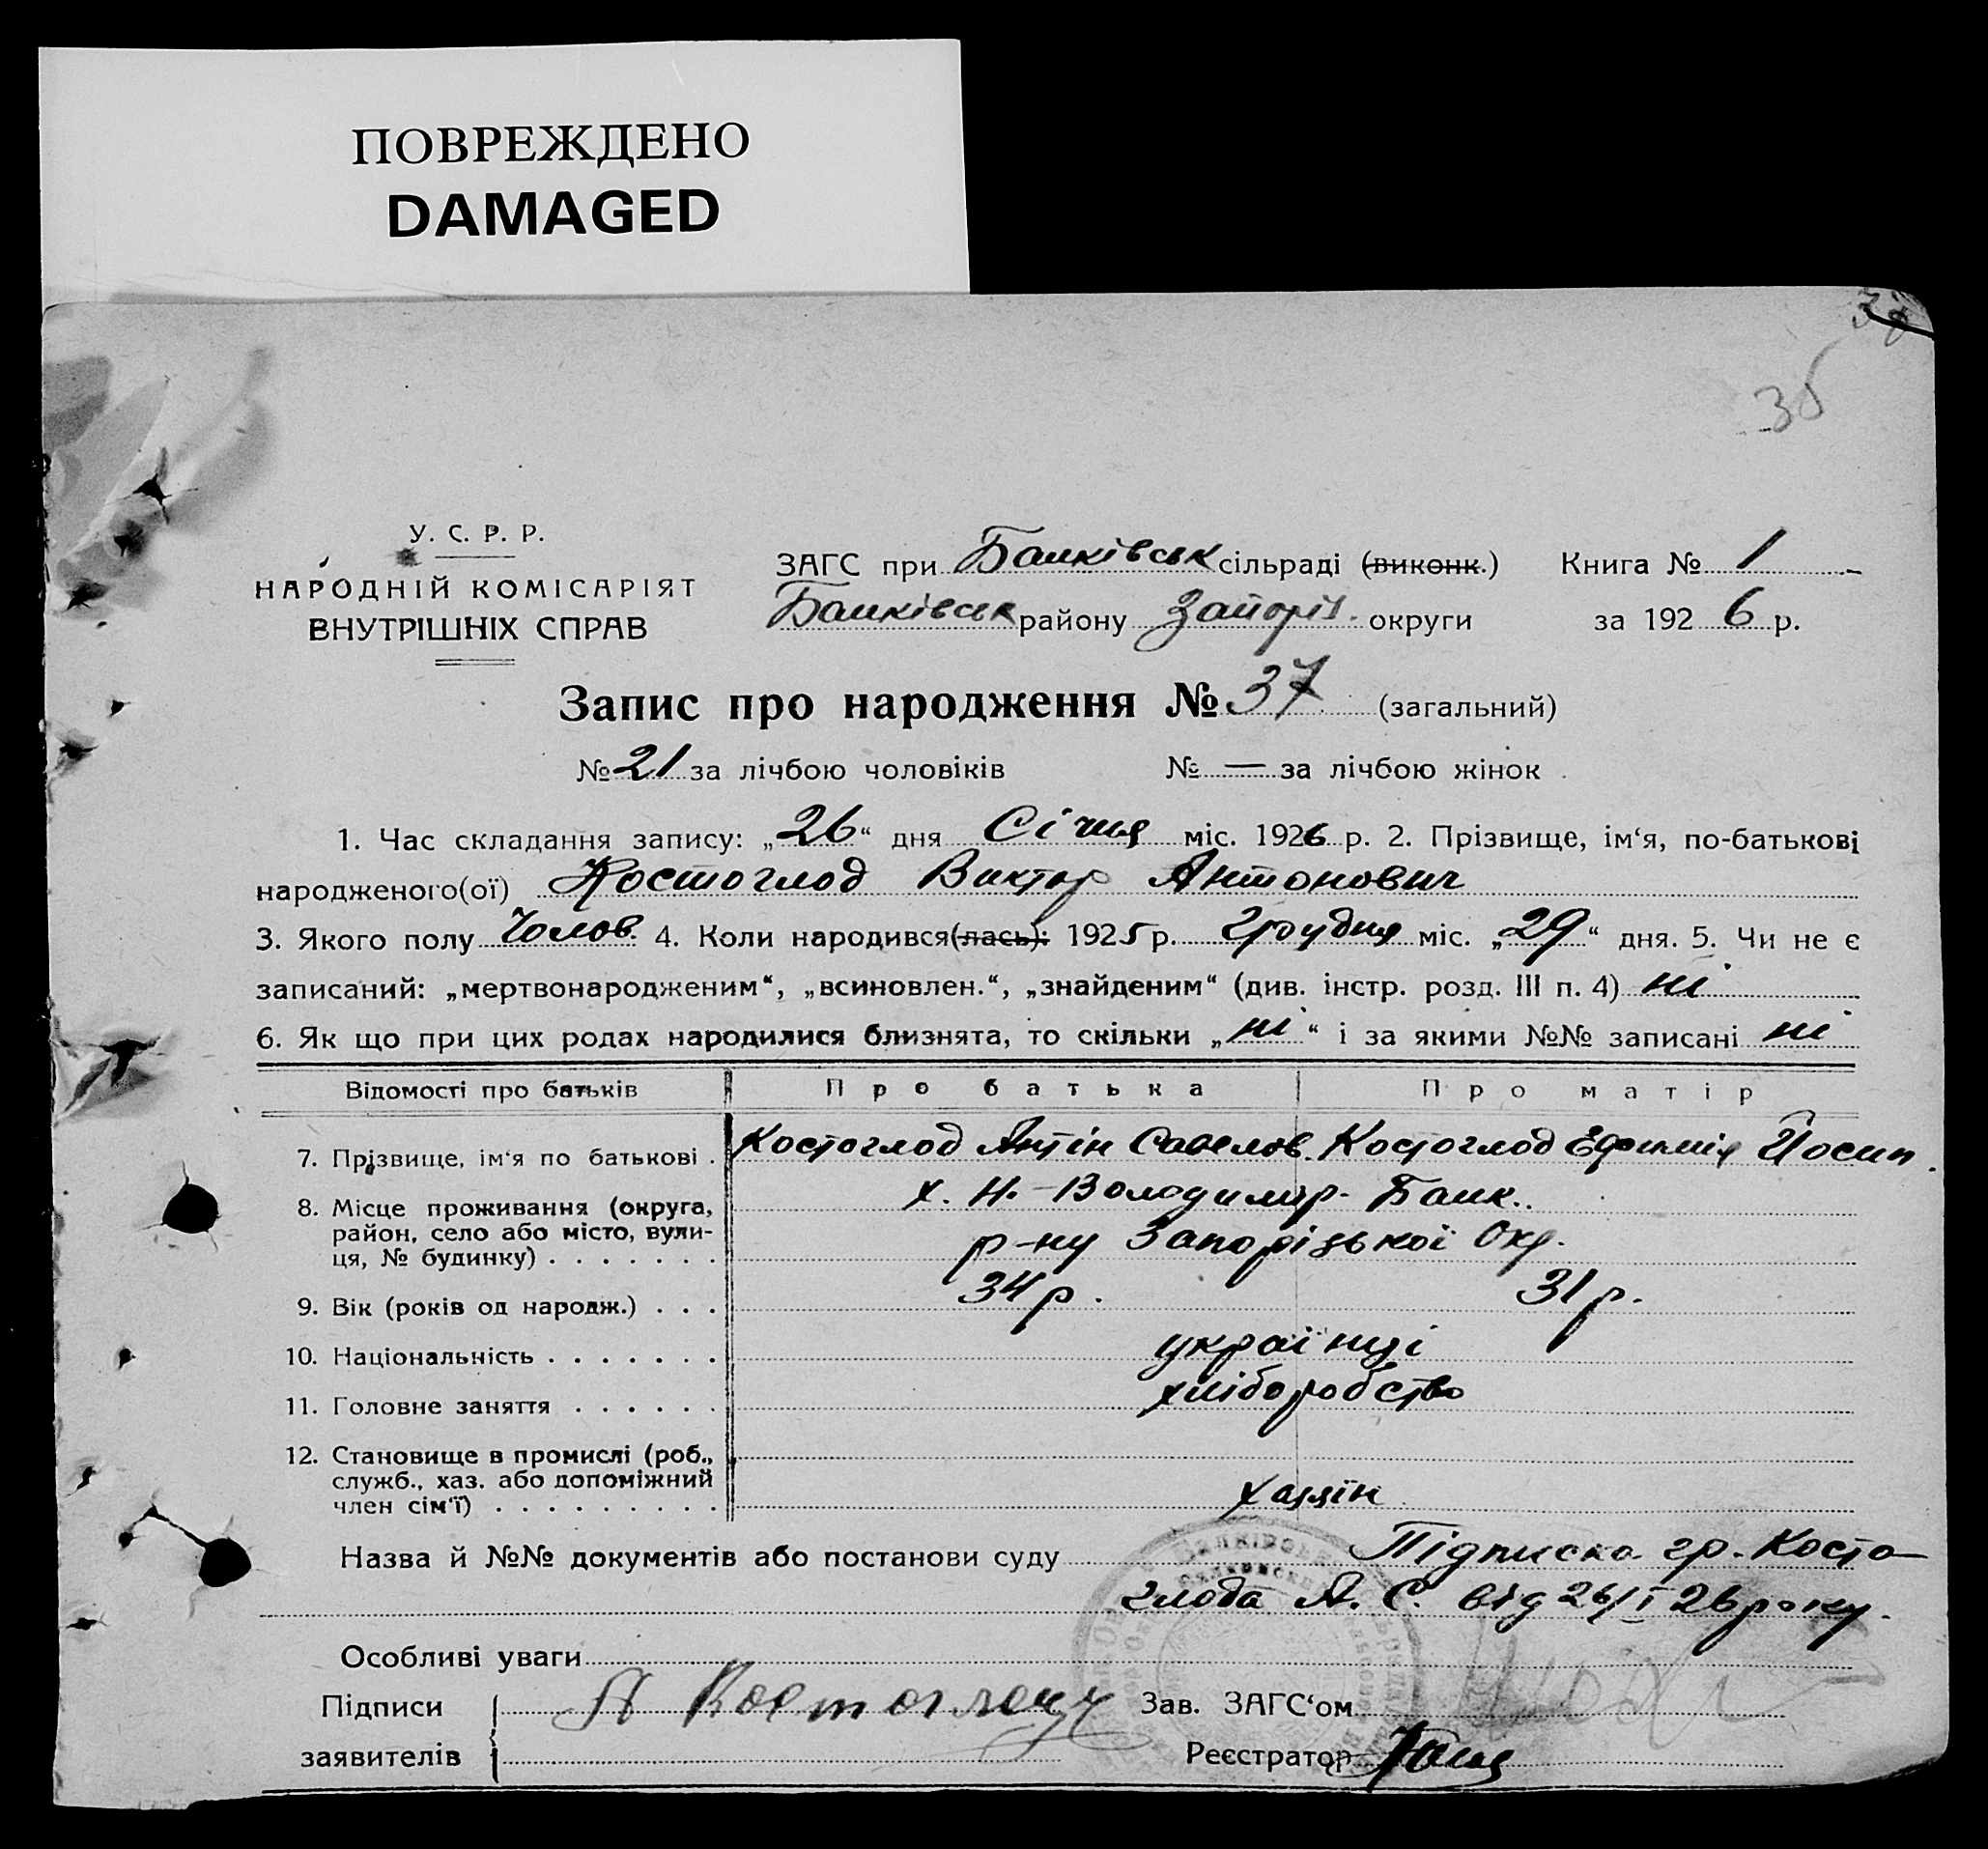 ПОВРЕЖДЕНО
DAMAGED
35
У. С. Р. Р.
НАРОДНІЙ КОМІСАРІЯТ
ВНУТРІШНІХ СПРАВ
ЗАГС при Балківськ сільраді (виконк.) Книга № 1
Балківськ району Запоріз. округи за 1926 р.
Запис про народження № 37 (загальний)
№ 21 за лічбою чоловіків № — за лічбою жінок
1. Час складання запису: „26“ дня Січня міс. 1926 р. 2. Прізвище, ім‘я, по-батькові
народженого(ої) Костоглод Виктор Антонович
3. Якого полу Чолов. 4. Коли народився(лась): 1925 р. Грудня міс. „29“ дня. 5. Чи не є
записаний: „мертвонародженим“, „всиновлен.“, „знайденим“ (див. інстр. розд. III п. 4) ні
6. Як що при цих родах народилися близнята, то скільки „ні“ і за якими №№ записані ні
Відомості про батьків Про батька Про матір
7. Прізвище, ім‘я по батькові . Костоглод Антін Савелов. Костоглод Ефимія Йосип.
8. Місце проживання (округа, район, село або місто, вулиця, № будинку) . . . . . . . х. Н.-Володимир. Балк.
р-ну Запорізької Окр.
9. Вік (років од народж.) . . . 34 р. 31 р.
10. Національність . . . . . . . українці
11. Головне заняття . . . . . . хліборобство
12. Становище в промислі (роб., служб., хаз. або допоміжний член сім‘ї) . . . . . . . . . хазяїн
Назва й №№ документів або постанови суду Підписка гр. Косто-
глода А. С. від 26/I 26 року.
Особливі уваги
Підписи А Костоглод Зав. ЗАГС‘ом
заявителів Реєстратор